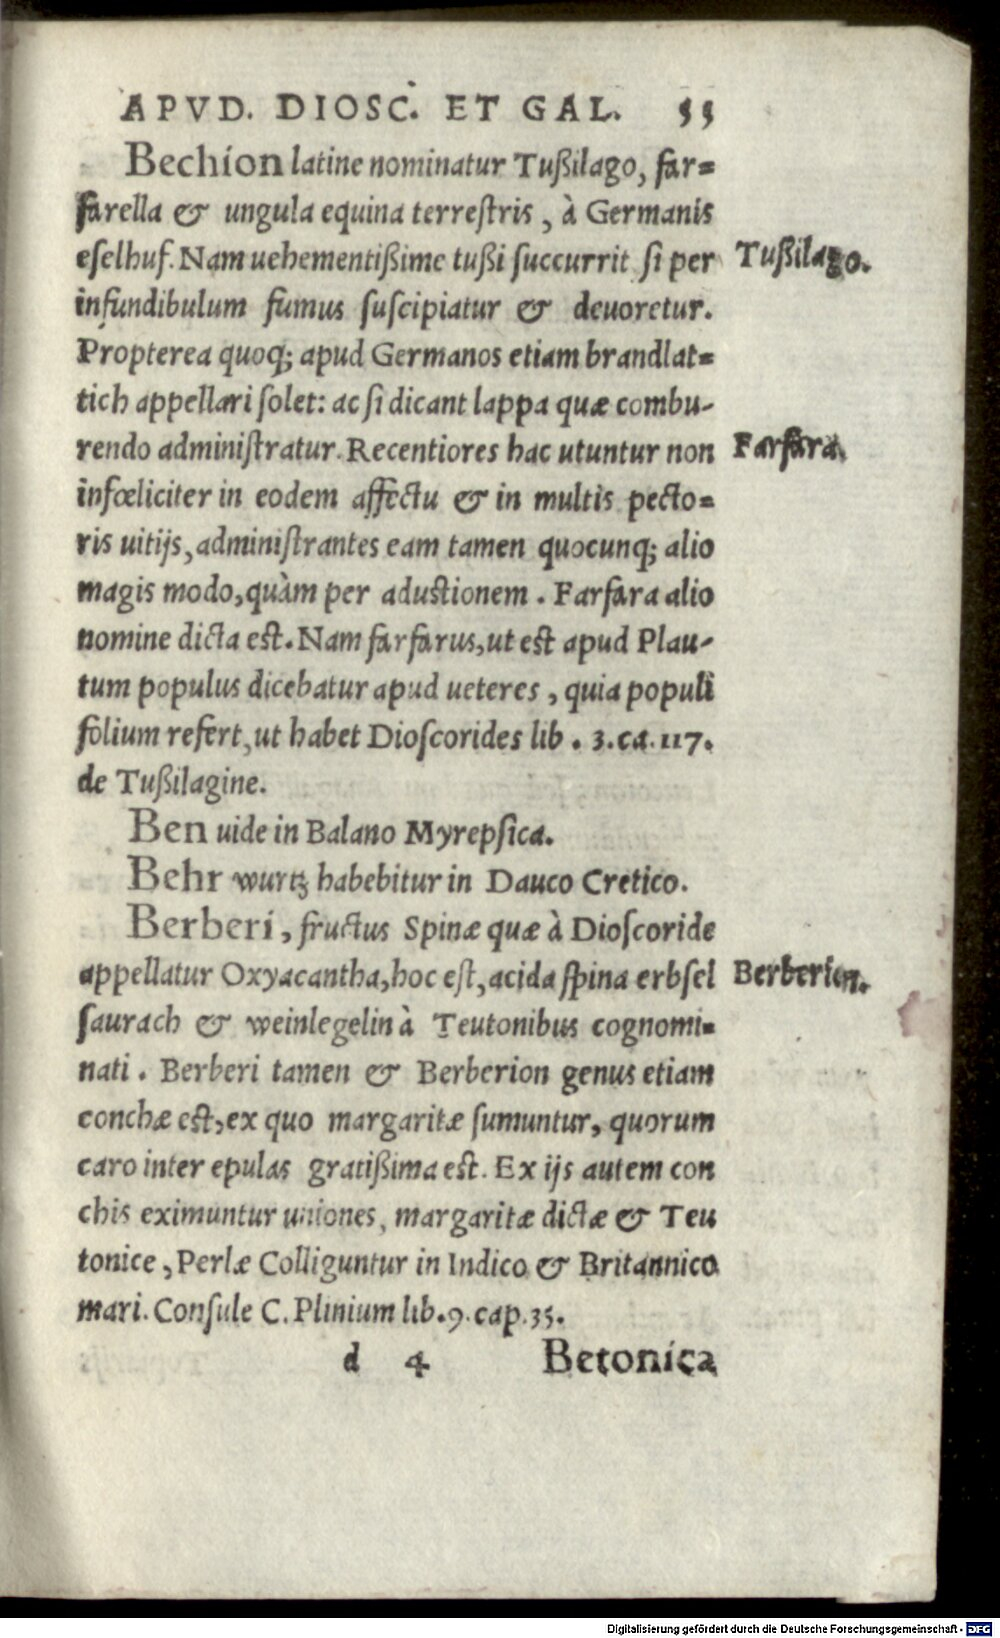 APVD. DIOSC. ET GAL. 55
Bechion latine nominatur Tußilago, far=
farella & ungula equina terreſtris, à Germanis
eſelhuf. Nam uehementißime tußi ſuccurrit ſi per
Tußilago.
infundibulum fumus ſuſcipiatur & deuoretur.
Propterea quoq; apud Germanos etiam brandlat=
tich appellari ſolet: ac ſi dicant lappa quæ combu-
rendo adminiſtratur. Recentiores hac utuntur non
Farfara.
infœliciter in eodem affectu & in multis pecto=
ris uitijs, adminiſtrantes eam tamen quocunq; alio
magis modo, quàm per aduſtionem. Farfara alio
nomine dicta eſt. Nam farfarus, ut eſt apud Plau-
tum populus dicebatur apud ueteres, quia populi
folium refert, ut habet Dioſcorides lib. 3. ca. 117.
de Tußilagine.
Ben uide in Balano Myrepſica.
Behr wurtz habebitur in Dauco Cretico.
Berberi, fructus Spinæ quæ à Dioſcoride
appellatur Oxyacantha, hoc eſt, acida ſpina erbſel
Berberion.
ſaurach & weinlegelin à Teutonibus cognomi=
nati. Berberi tamen & Berberion genus etiam
conchæ eſt, ex quo margaritæ ſumuntur, quorum
caro inter epulas gratißima eſt. Ex ijs autem con
chis eximuntur uniones, margaritæ dictæ & Teu
tonice, Perlæ Colliguntur in Indico & Britannico
mari. Conſule C. Plinium lib. 9. cap. 35.
d 4 Betonica
Digitalisierung gefördert durch die Deutsche Forschungsgemeinschaft - DFG